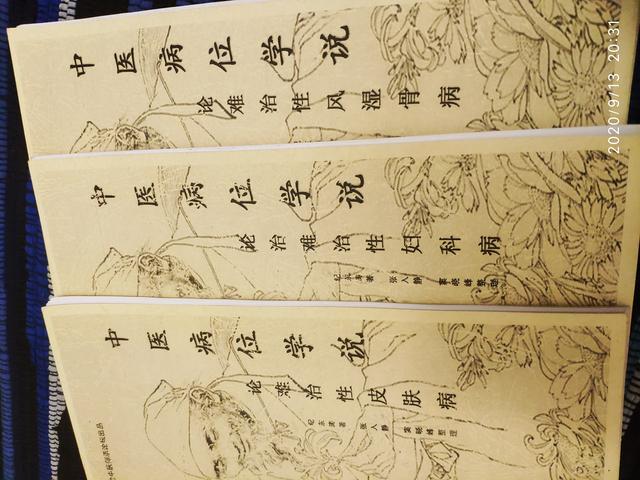 中医病位学说
论难治性风湿骨病
中医病位学说
论治难治性妇科病
中医病位学说
论难治性皮肤病
2020/9/13 20:31